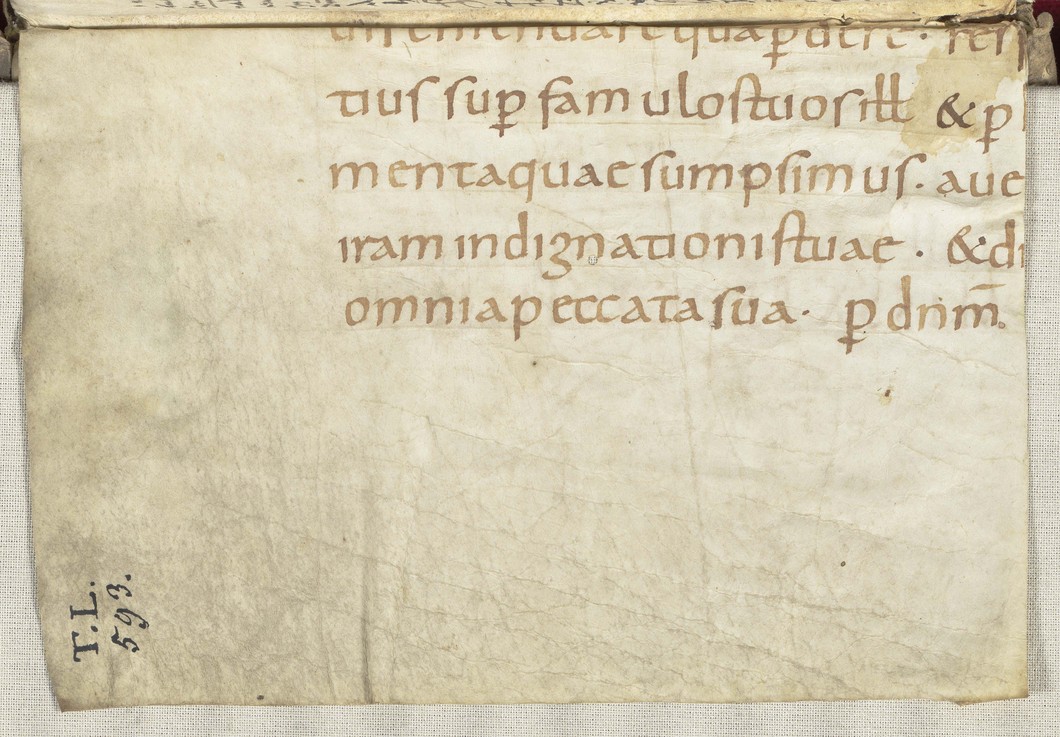 emendare qua p dere · res
tius sup famulos tuos ill & p
menta quae sumpsimus · aue
iram indignationis tuae · & di
omnia peccata sua · p dnm̄
T.L.
593.